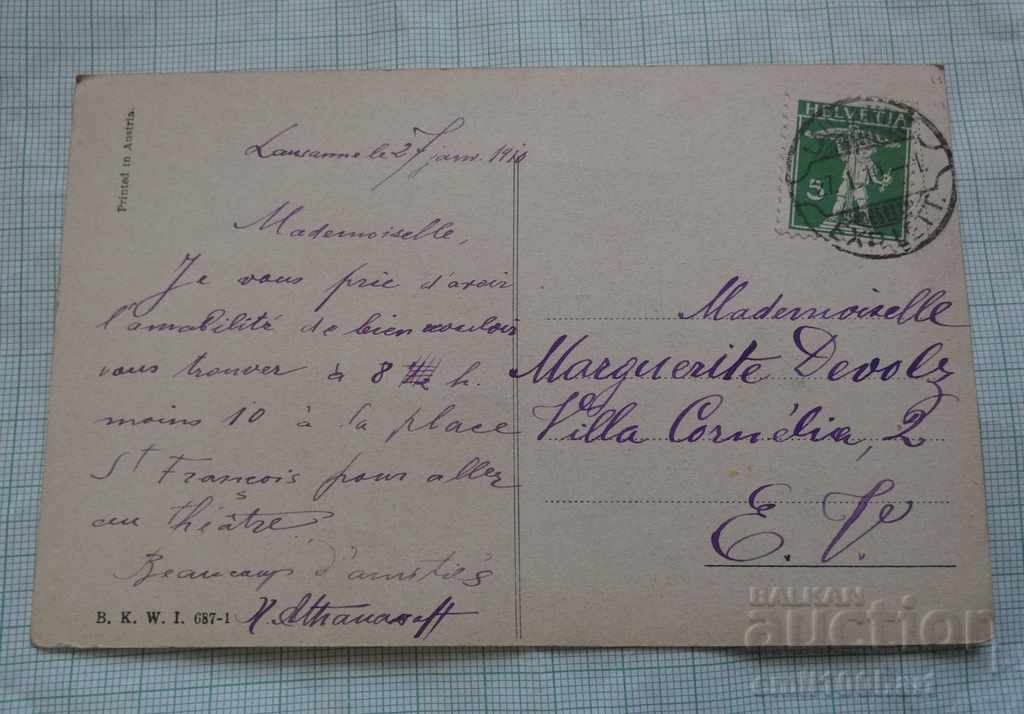 Printed in Austria.
Lausanne le 27 janv. 1910
Mademoiselle,
Je vous prie d'avoir
l'amabilité de bien vouloir
vous trouver à 8 h.
moins 10 à la place
St François pour aller
au théâtre.
Beaucoup d'amitiés
Athanasoff
B. K. W. I. 687-1
HELVETIA
5
Mademoiselle
Marguerite Devolz
Villa Cornélia, 2
E. V.
BALKAN
auction